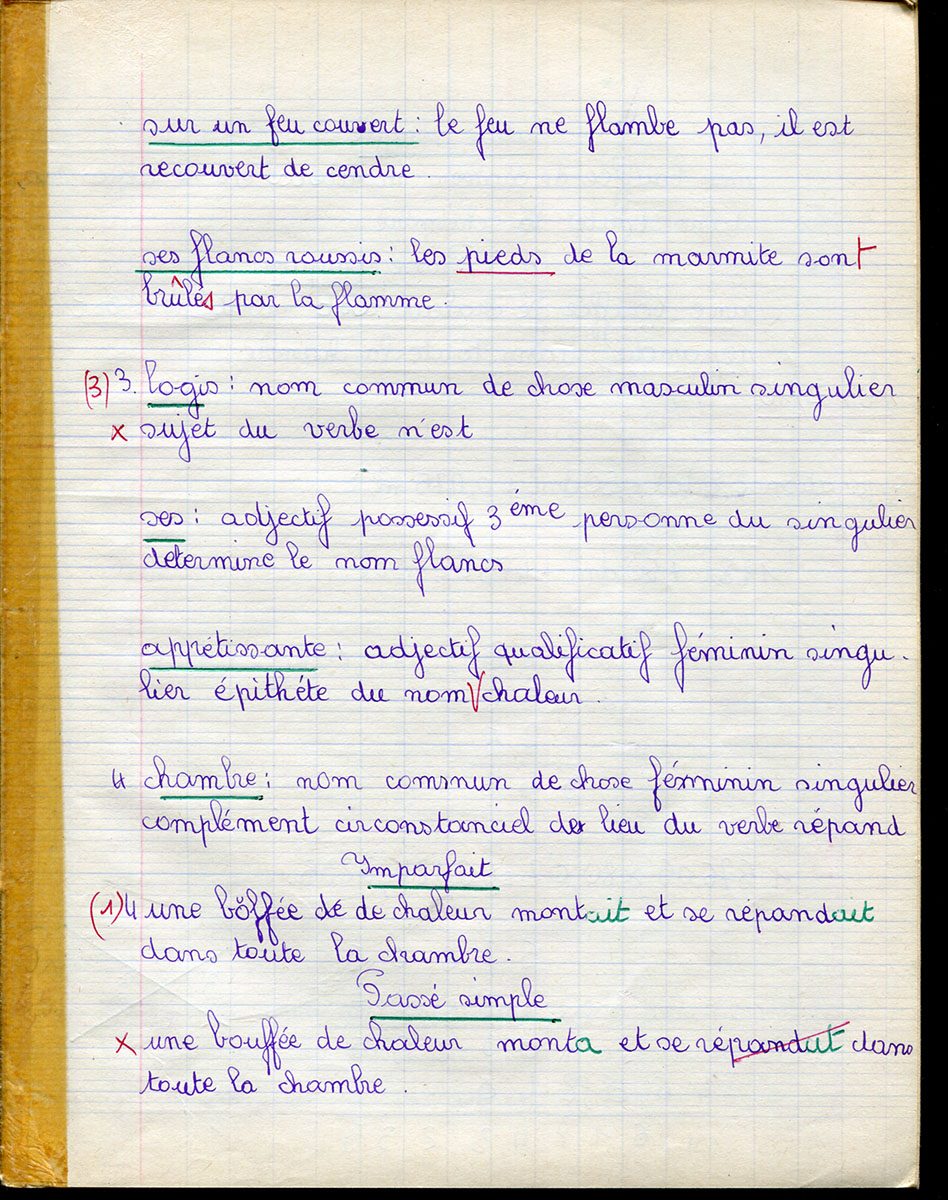 sur un feu couvert : le feu ne flambe pas, il est
recouvert de cendre.
ses flancs roussis : les pieds de la marmite sont
brûlés par la flamme.
(3) 3. logis : nom commun de chose masculin singulier
x sujet du verbe n'est
ses : adjectif possessif 3 éme personne du singulier
determine le nom flancs
apprétissante : adjectif qualificatif féminin singu-
lier épithéte du nom chaleur.
4 chambre : nom commun de chose féminin singulier
complément circonstanciel de lieu du verbe répand
Imparfait
(1) 4 une bouffée de de chaleur montait et se répandait
dans toute la chambre.
Passé simple
x une bouffée de chaleur monta et se répanduit dans
toute la chambre.